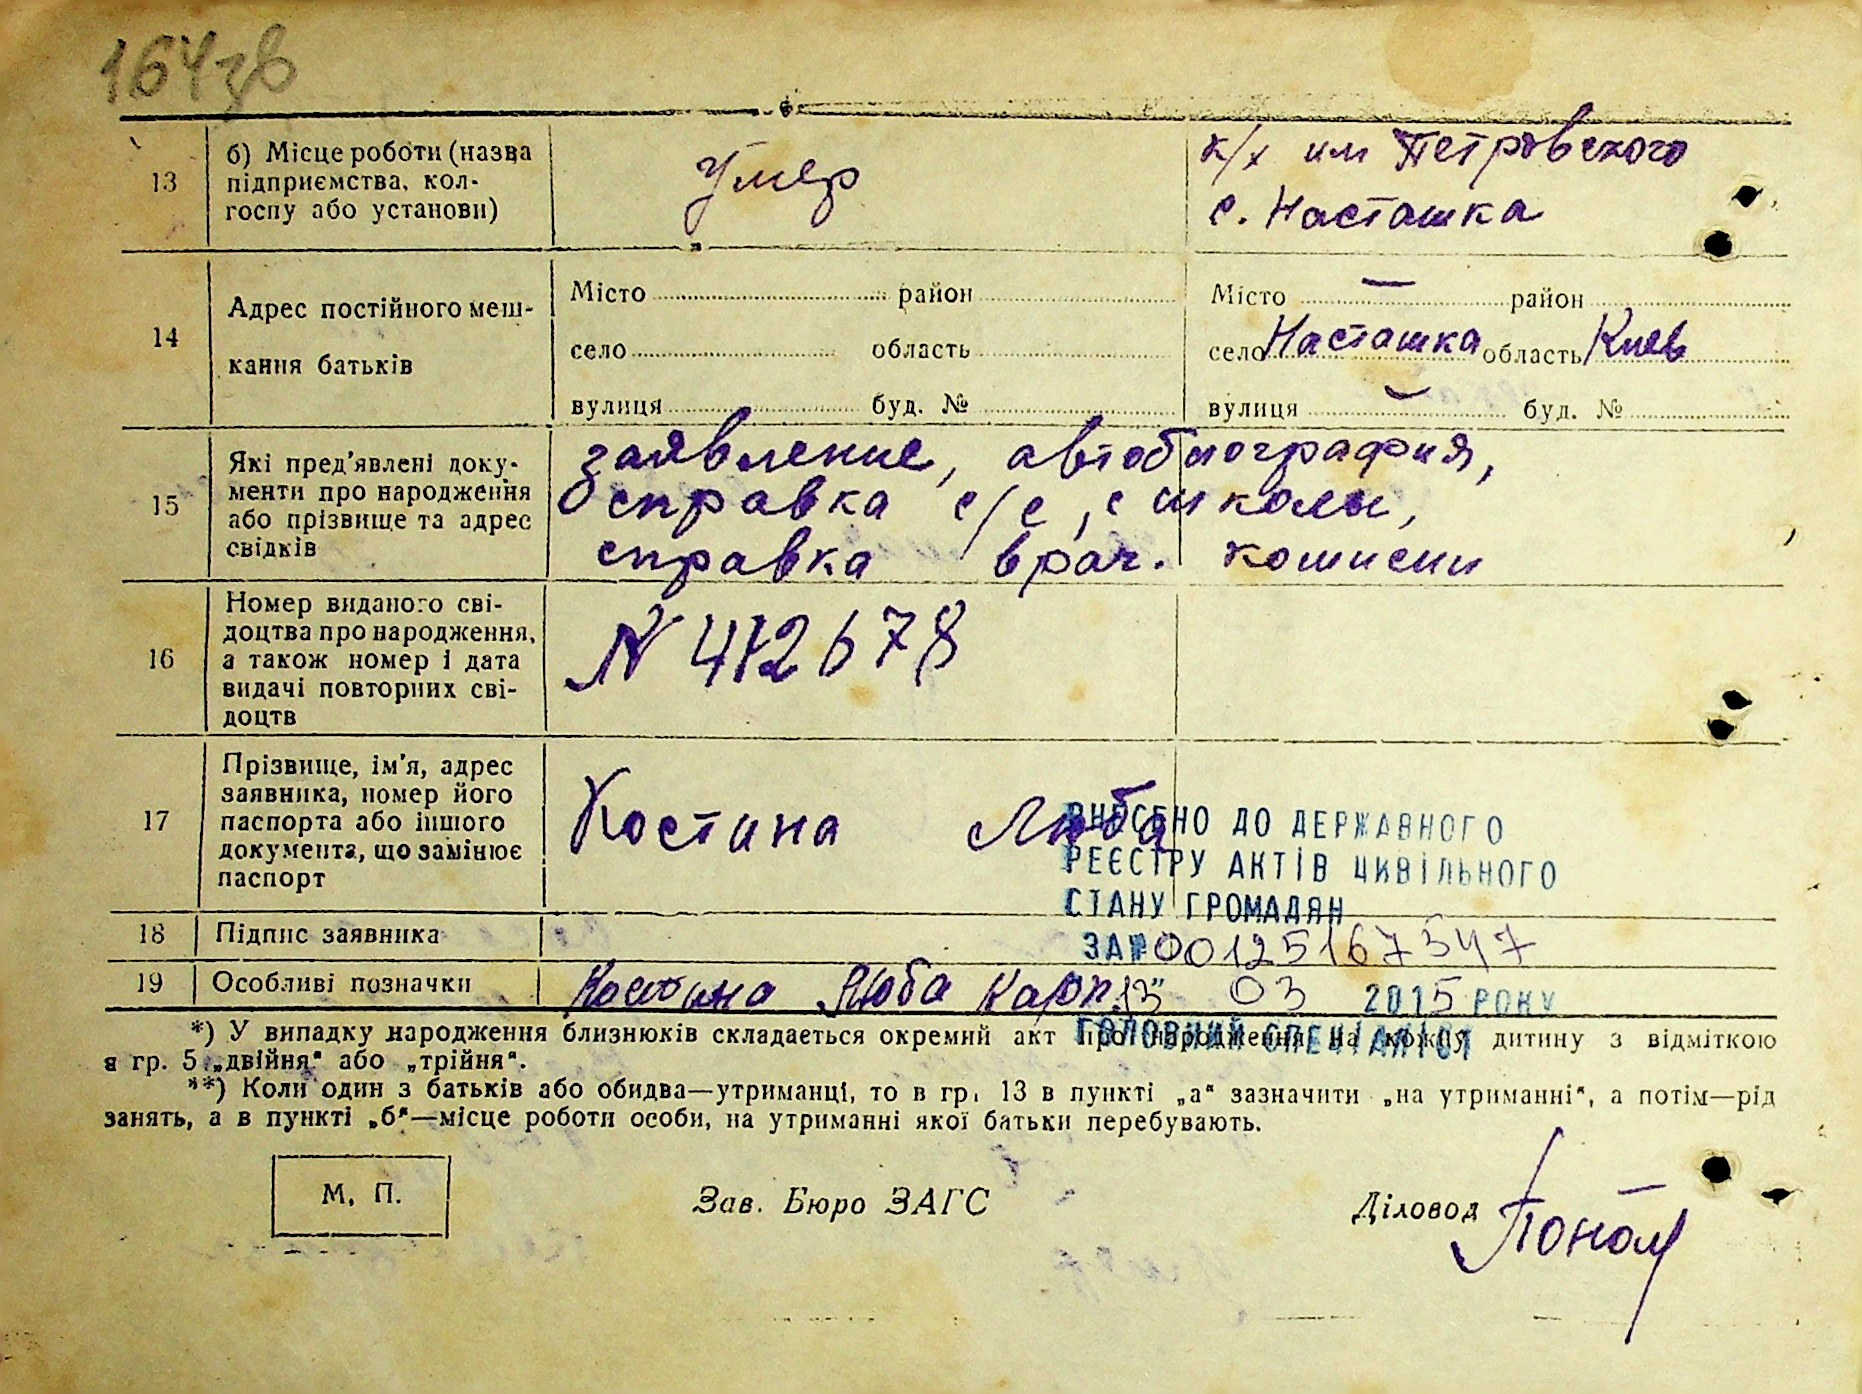 164зв
13
б) Місце роботи (назва
підприємства, кол-
госпу або установи)
Умер
к/х им Петровского
с. Насташка
14
Адрес постійного меш-
кання батьків
Місто район
село область
вулиця буд. №
Місто — район
село Насташка область Киев
вулиця — буд. №
15
Які пред'явлені доку-
менти про народження
або прізвище та адрес
свідків
заявление, автобиография,
справка с/с, с школы,
справка врач. комисии
16
Номер виданого сві-
доцтва про народження,
а також номер і дата
видачі повторних сві-
доцтв
N 412678
17
Прізвище, ім'я, адрес
заявника, номер його
паспорта або іншого
документа, що замінює
паспорт
Костина Люба
ВНЕСЕНО ДО ДЕРЖАВНОГО
РЕЄСТРУ АКТІВ ЦИВІЛЬНОГО
СТАНУ ГРОМАДЯН
ЗА № 00125167347
18
Підпис заявника
19
Особливі позначки
Костина Люба Карп.
13" 03 2015 РОКУ
ГОЛОВНИЙ СПЕЦІАЛІСТ
*) У випадку народження близнюків складається окремий акт про народження на кожну дитину з відміткою
в гр. 5 „двійня" або „трійня".
**) Коли один з батьків або обидва—утриманці, то в гр. 13 в пункті „а" зазначити „на утриманні", а потім—рід
занять, а в пункті „б"—місце роботи особи, на утриманні якої батьки перебувають.
М. П.
Зав. Бюро ЗАГС
Діловод